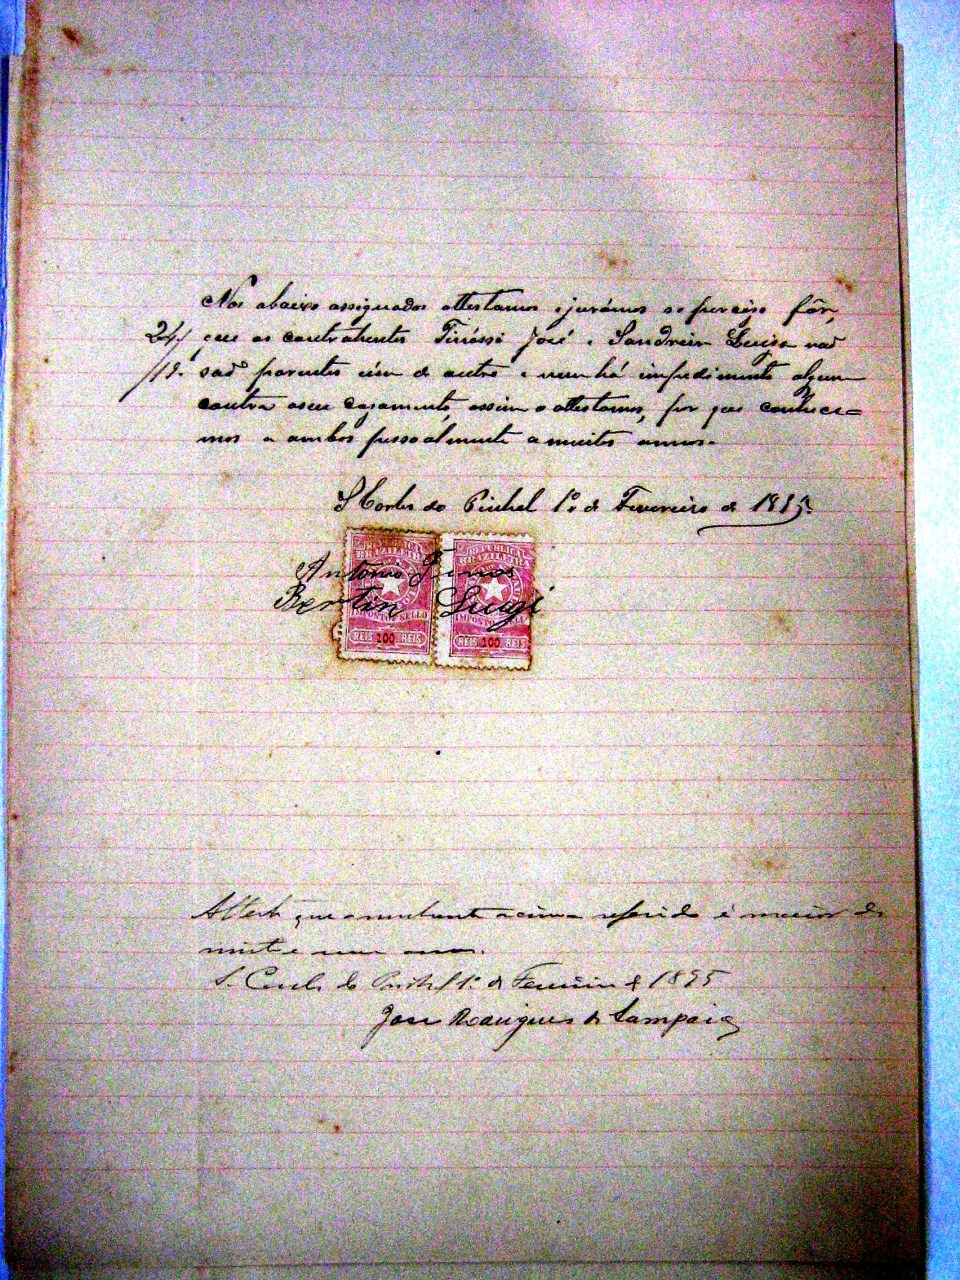 Nos abaixo assignados attestamos e jurámos se preciso fôr,
24/ que os contrahentes Tiréssi José e Sandrin Luisa naõ
/19. saõ parentes um do outro e nem há impedimento algum
contra o seu casamento, assim o attestamos, por que conhece=
mos a ambos pessoalmente a muitos annos.
S Carlos do Pinhal 1º de Fevereiro de 1895.
Antonio
Bertin Luigi
REPUBLICA BRAZILEIRA
IMPOSTO SELLO
REIS 100 REIS
REPUBLICA BRAZILEIRA
IMPOSTO SELLO
REIS 100 REIS
Attesto que o nubente acima referido é maior de
vinte e um annos.
S. Carlos do Pinhal 1º de Fevereiro de 1895
Jose Rodrigues de Sampaio